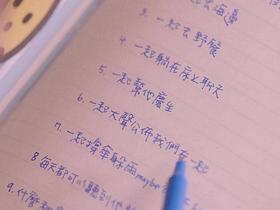 一起去海邊
3. 一起去野餐
4. 一起躺在床上聊天
5. 一起幫他慶生
6. 一起大聲公佈我們在一起
7. 一起撐傘躲雨maybe
8 每天都可以聽到他
9. 什麼